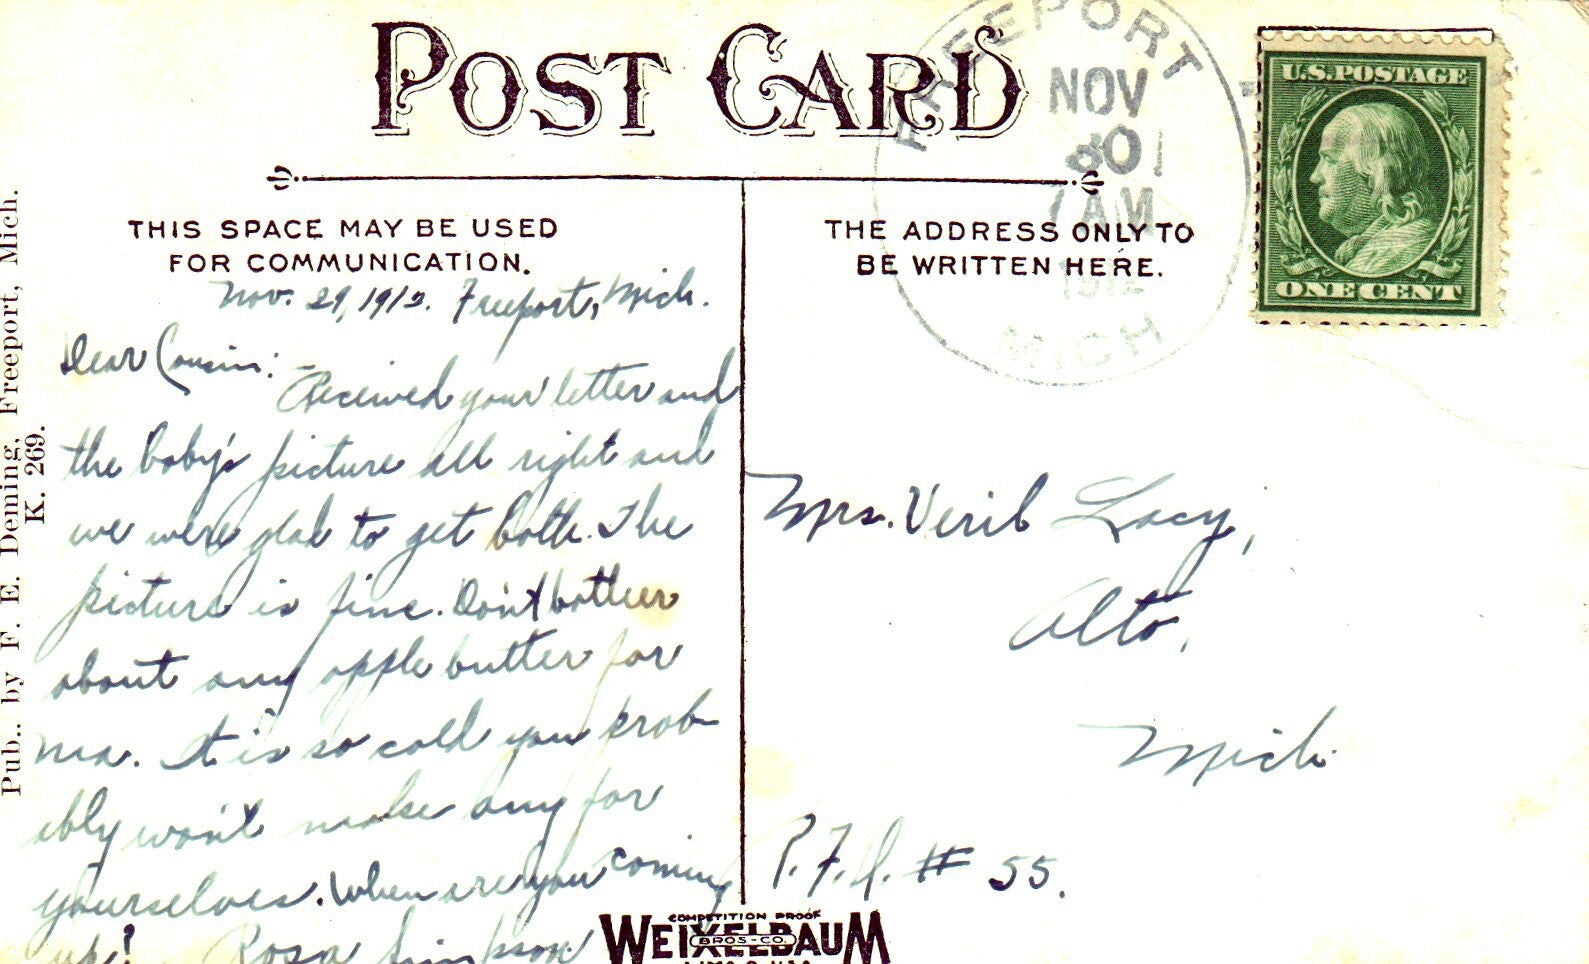 POST CARD
THIS SPACE MAY BE USED
FOR COMMUNICATION.
Nov. 29, 1912. Freeport, Mich.
Dear Cousin: –
Received your letter and
the baby's picture all right and
we were glad to get both. The
picture is fine. Don't bother
about any apple butter for
ma. It is so cold you prob-
ably won't make any for
yourselves. When are you coming
up! Rosa Simpson
THE ADDRESS ONLY TO
BE WRITTEN HERE.
FREEPORT
NOV
30
7 AM
1912
MICH
U.S. POSTAGE
ONE CENT
Mrs. Veril Lacy,
Alto,
Mich.
R.F.D. # 55.
Pub.. by F. E. Deming, Freeport, Mich.
K. 269.
COMPETITION PROOF
WEIXELBAUM
BROS-CO.
LIMA O. USA